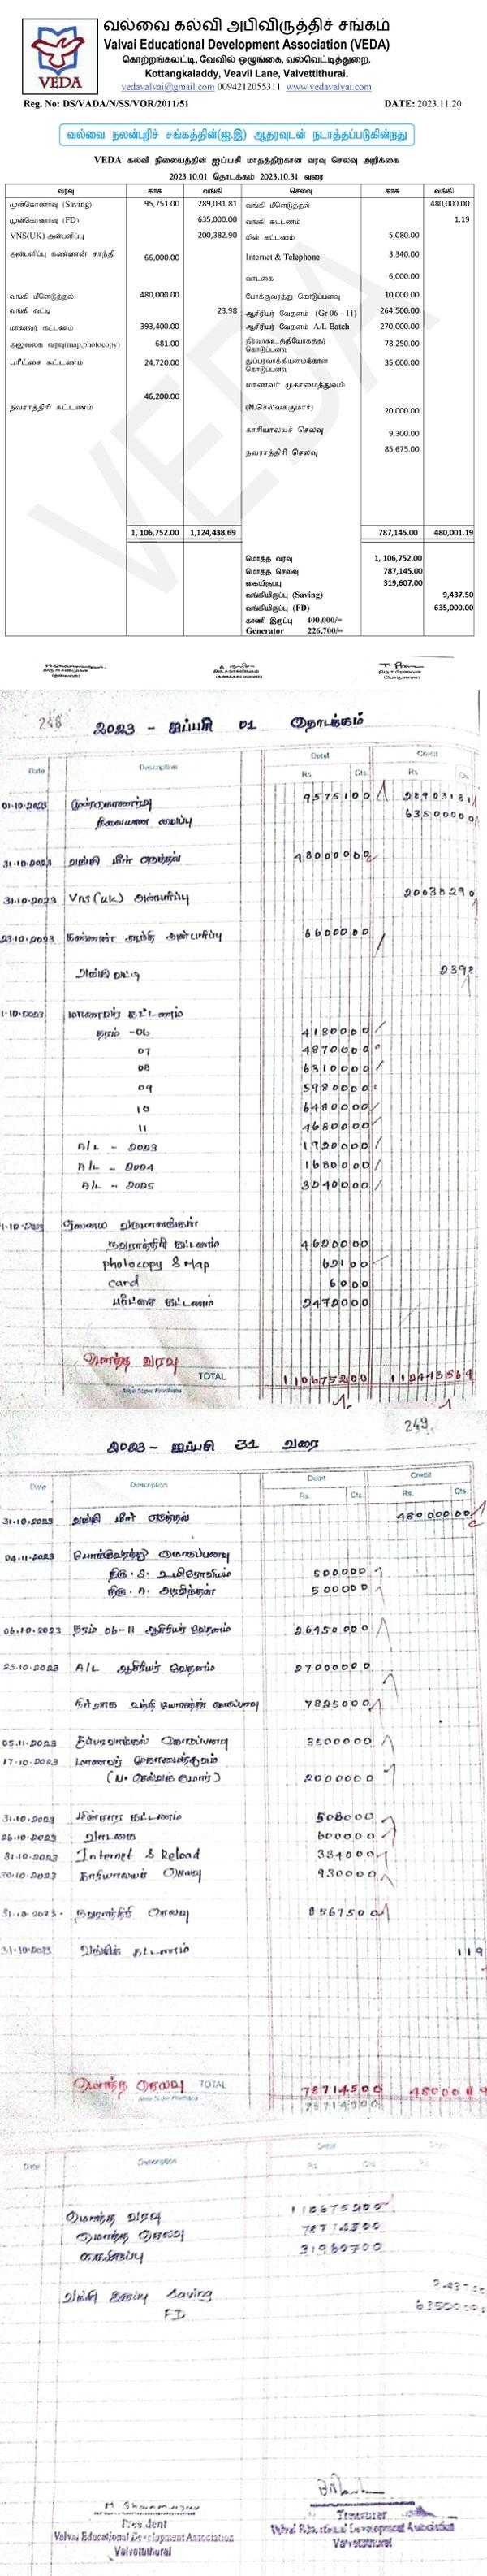 வல்வை கல்வி அபிவிருத்திச் சங்கம்
Valvai Educational Development Association (VEDA)
கொற்றங்கலட்டி, வேவில் ஒழுங்கை, வல்வெட்டித்துறை.
Kottangkaladdy, Veavil Lane, Valvettithurai.
VEDA
vedavalvai@gmail.com 0094212055311 www.vedavalvai.com
Reg. No: DS/VADA/N/SS/VOR/2011/51 DATE: 2023.11.20
வல்வை நலன்புரிச் சங்கத்தின்(ஐ.இ) ஆதரவுடன் நடாத்தப்படுகின்றது
VEDA கல்வி நிலையத்தின் ஐப்பசி மாதத்திற்கான வரவு செலவு அறிக்கை
2023.10.01 தொடக்கம் 2023.10.31 வரை
வரவு காசு வங்கி செலவு காசு வங்கி
முன்கொணர்வு (Saving) 95,751.00 289,031.81 வங்கி மீளெடுத்தல் 480,000.00
முன்கொணர்வு (FD) 635,000.00 வங்கி கட்டணம் 1.19
VNS(UK) அன்பளிப்பு 200,382.90 மின் கட்டணம் 5,080.00
அன்பளிப்பு கண்ணன் சாந்தி 66,000.00 Internet & Telephone 3,340.00
வாடகை 6,000.00
வங்கி மீளெடுத்தல் 480,000.00 போக்குவரத்து கொடுப்பனவு 10,000.00
வங்கி வட்டி 23.98 ஆசிரியர் வேதனம் (Gr 06 - 11) 264,500.00
மாணவர் கட்டணம் 393,400.00 ஆசிரியர் வேதனம் A/L Batch 270,000.00
அலுவலக வரவு(map,photocopy) 681.00 நிர்வாக உத்தியோகத்தர் கொடுப்பனவு 78,250.00
பரீட்சை கட்டணம் 24,720.00 துப்பரவாக்கியமைக்கான கொடுப்பனவு 35,000.00
மாணவர் முகாமைத்துவம்
46,200.00
நவராத்திரி கட்டணம் (N.செல்வக்குமார்) 20,000.00
காரியாலயச் செலவு 9,300.00
நவராத்திரி செலவு 85,675.00
1, 106,752.00 1,124,438.69 787,145.00 480,001.19
மொத்த வரவு 1, 106,752.00
மொத்த செலவு 787,145.00
கையிருப்பு 319,607.00
வங்கியிருப்பு (Saving) 9,437.50
வங்கியிருப்பு (FD) 635,000.00
காணி இருப்பு 400,000/=
Generator 226,700/=
248
2023 - ஐப்பசி 01 தொடக்கம்
Date Description Debit Credit
Rs Cts. Rs Cts
01-10-2023 முன்கொணர்வு 9575100 28903181
நிலையான வைப்பு 63500000
31-10-2023 வங்கி மீள் எடுத்தல் 48000000
31-10-2023 VNS(UK) அன்பளிப்பு 20038290
23-10-2023 கண்ணன் சாந்தி அன்பளிப்பு 6600000
வங்கி வட்டி 2398
1-10-2023 மாணவர் கட்டணம்
தரம் -06 4180000
07 4870000
08 6310000
09 5980000
10 6480000
11 4680000
A/L - 2023 1920000
A/L - 2024 1680000
A/L - 2025 3240000
நவராத்திரி கட்டணம் 4620000
photocopy & Map 62100
card 6000
பரீட்சை கட்டணம் 2472000
மொத்த வரவு TOTAL 110675200
249
2023 - ஐப்பசி 31 வரை
Date Description Debit Credit
Rs. Cts Rs. Cts.
31-10-2023 வங்கி மீள் எடுத்தல் 48000000
04-11-2023 போக்குவரத்து கொடுப்பனவு
500000
500000
06.10.2023 தரம் 06-11 ஆசிரியர் வேதனம் 26450000
25-10-2023 A/L ஆசிரியர் வேதனம் 27000000
7825000
05.11.2023 3500000
17-10-2023 மாணவர் முகாமைத்துவம்
2000000
31-10-2023 மின்சார கட்டணம் 508000
26-10-2023 வாடகை 600000
31-10-2023 Internet & Reload 334000
30-10-2023 காரியாலயச் செலவு 930000
31-10-2023 - நவராத்திரி செலவு 8567500
31-10-2023 வங்கிக் கட்டணம் 119
மொத்த செலவு TOTAL 78714500 48000119
78714500
Date Description Debit
மொத்த வரவு 110675200
மொத்த செலவு 78714500
கையிருப்பு 31960700
வங்கி இருப்பு Saving
FD 63500000
President Treasurer
Valvai Educational Development Association Valvai Educational Development Association
Valvettithurai Valvettithurai